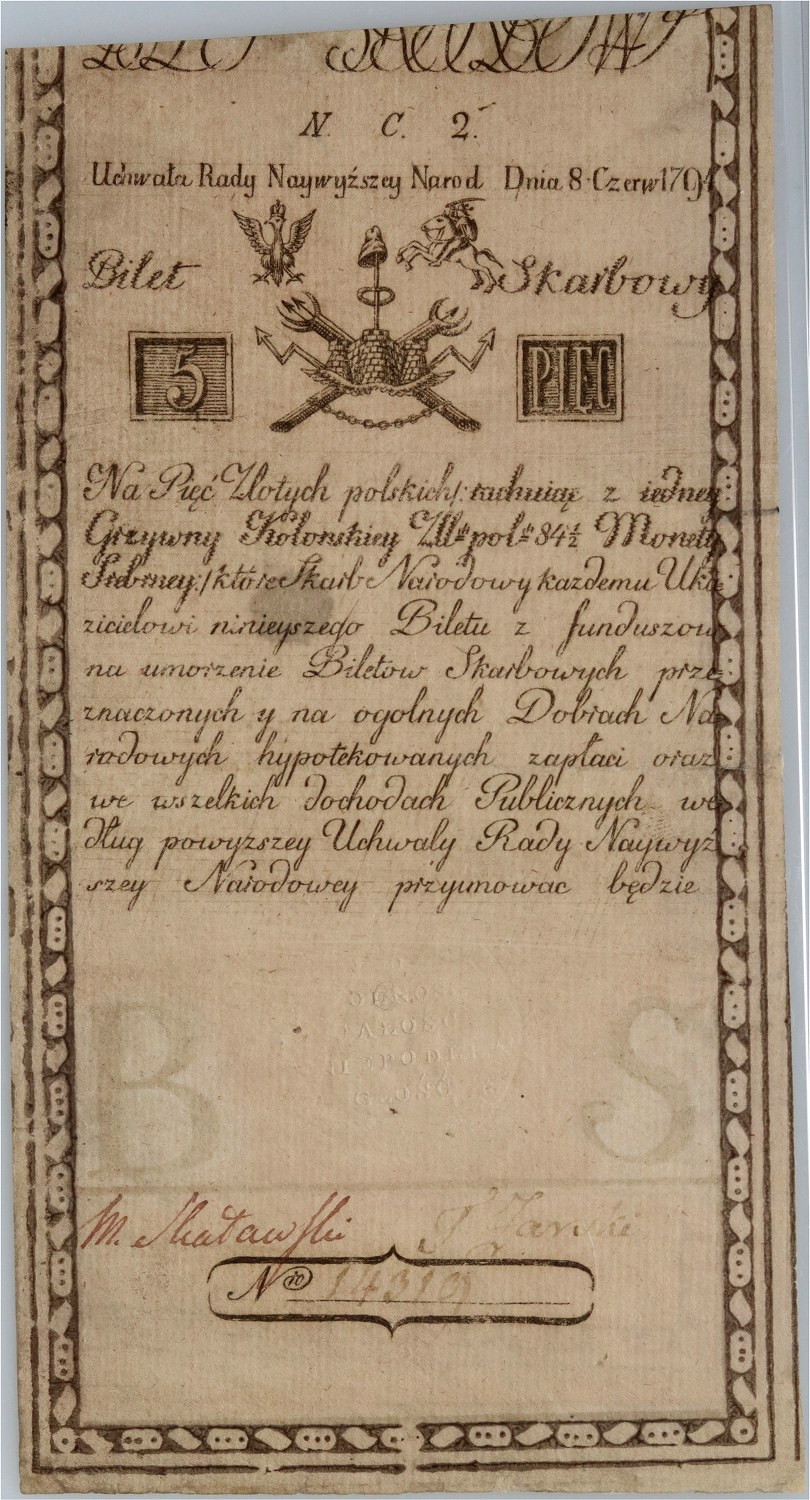 N. C. 2.
Uchwała Rady Naywyższey Narod Dnia 8 Czerw 1794
Bilet Skarbowy
5 PIĘĆ
Na Pięć Złotych polskich /: rachuiąc z iedney
Grzywny Kolonskiey Złł. pol. 84½ Monety
Srebrney :/ które Skarb Narodowy kazdemu Uka
zicielowi ninieyszego Biletu z funduszow
na umorzenie Biletow Skarbowych prze
znaczonych y na ogolnych Dobrach Na
rodowych hypotekowanych zapłaci oraz
we wszelkich dochodach Publicznych we
dług powyzszey Uchwały Rady Naywyż
szey Narodowey przyimowac będzie
B S
M. Skatawski Janski
N ro